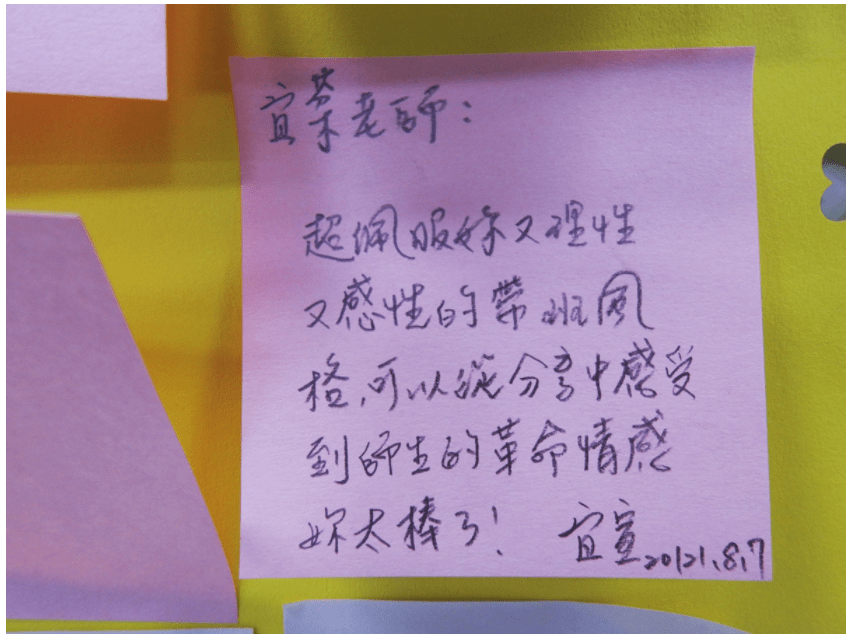 宜棻老師：
超佩服妳又理性
又感性的帶班風
格，可以從分享中感受
到師生的革命情感
妳太棒了！ 宜宣2021.8.7